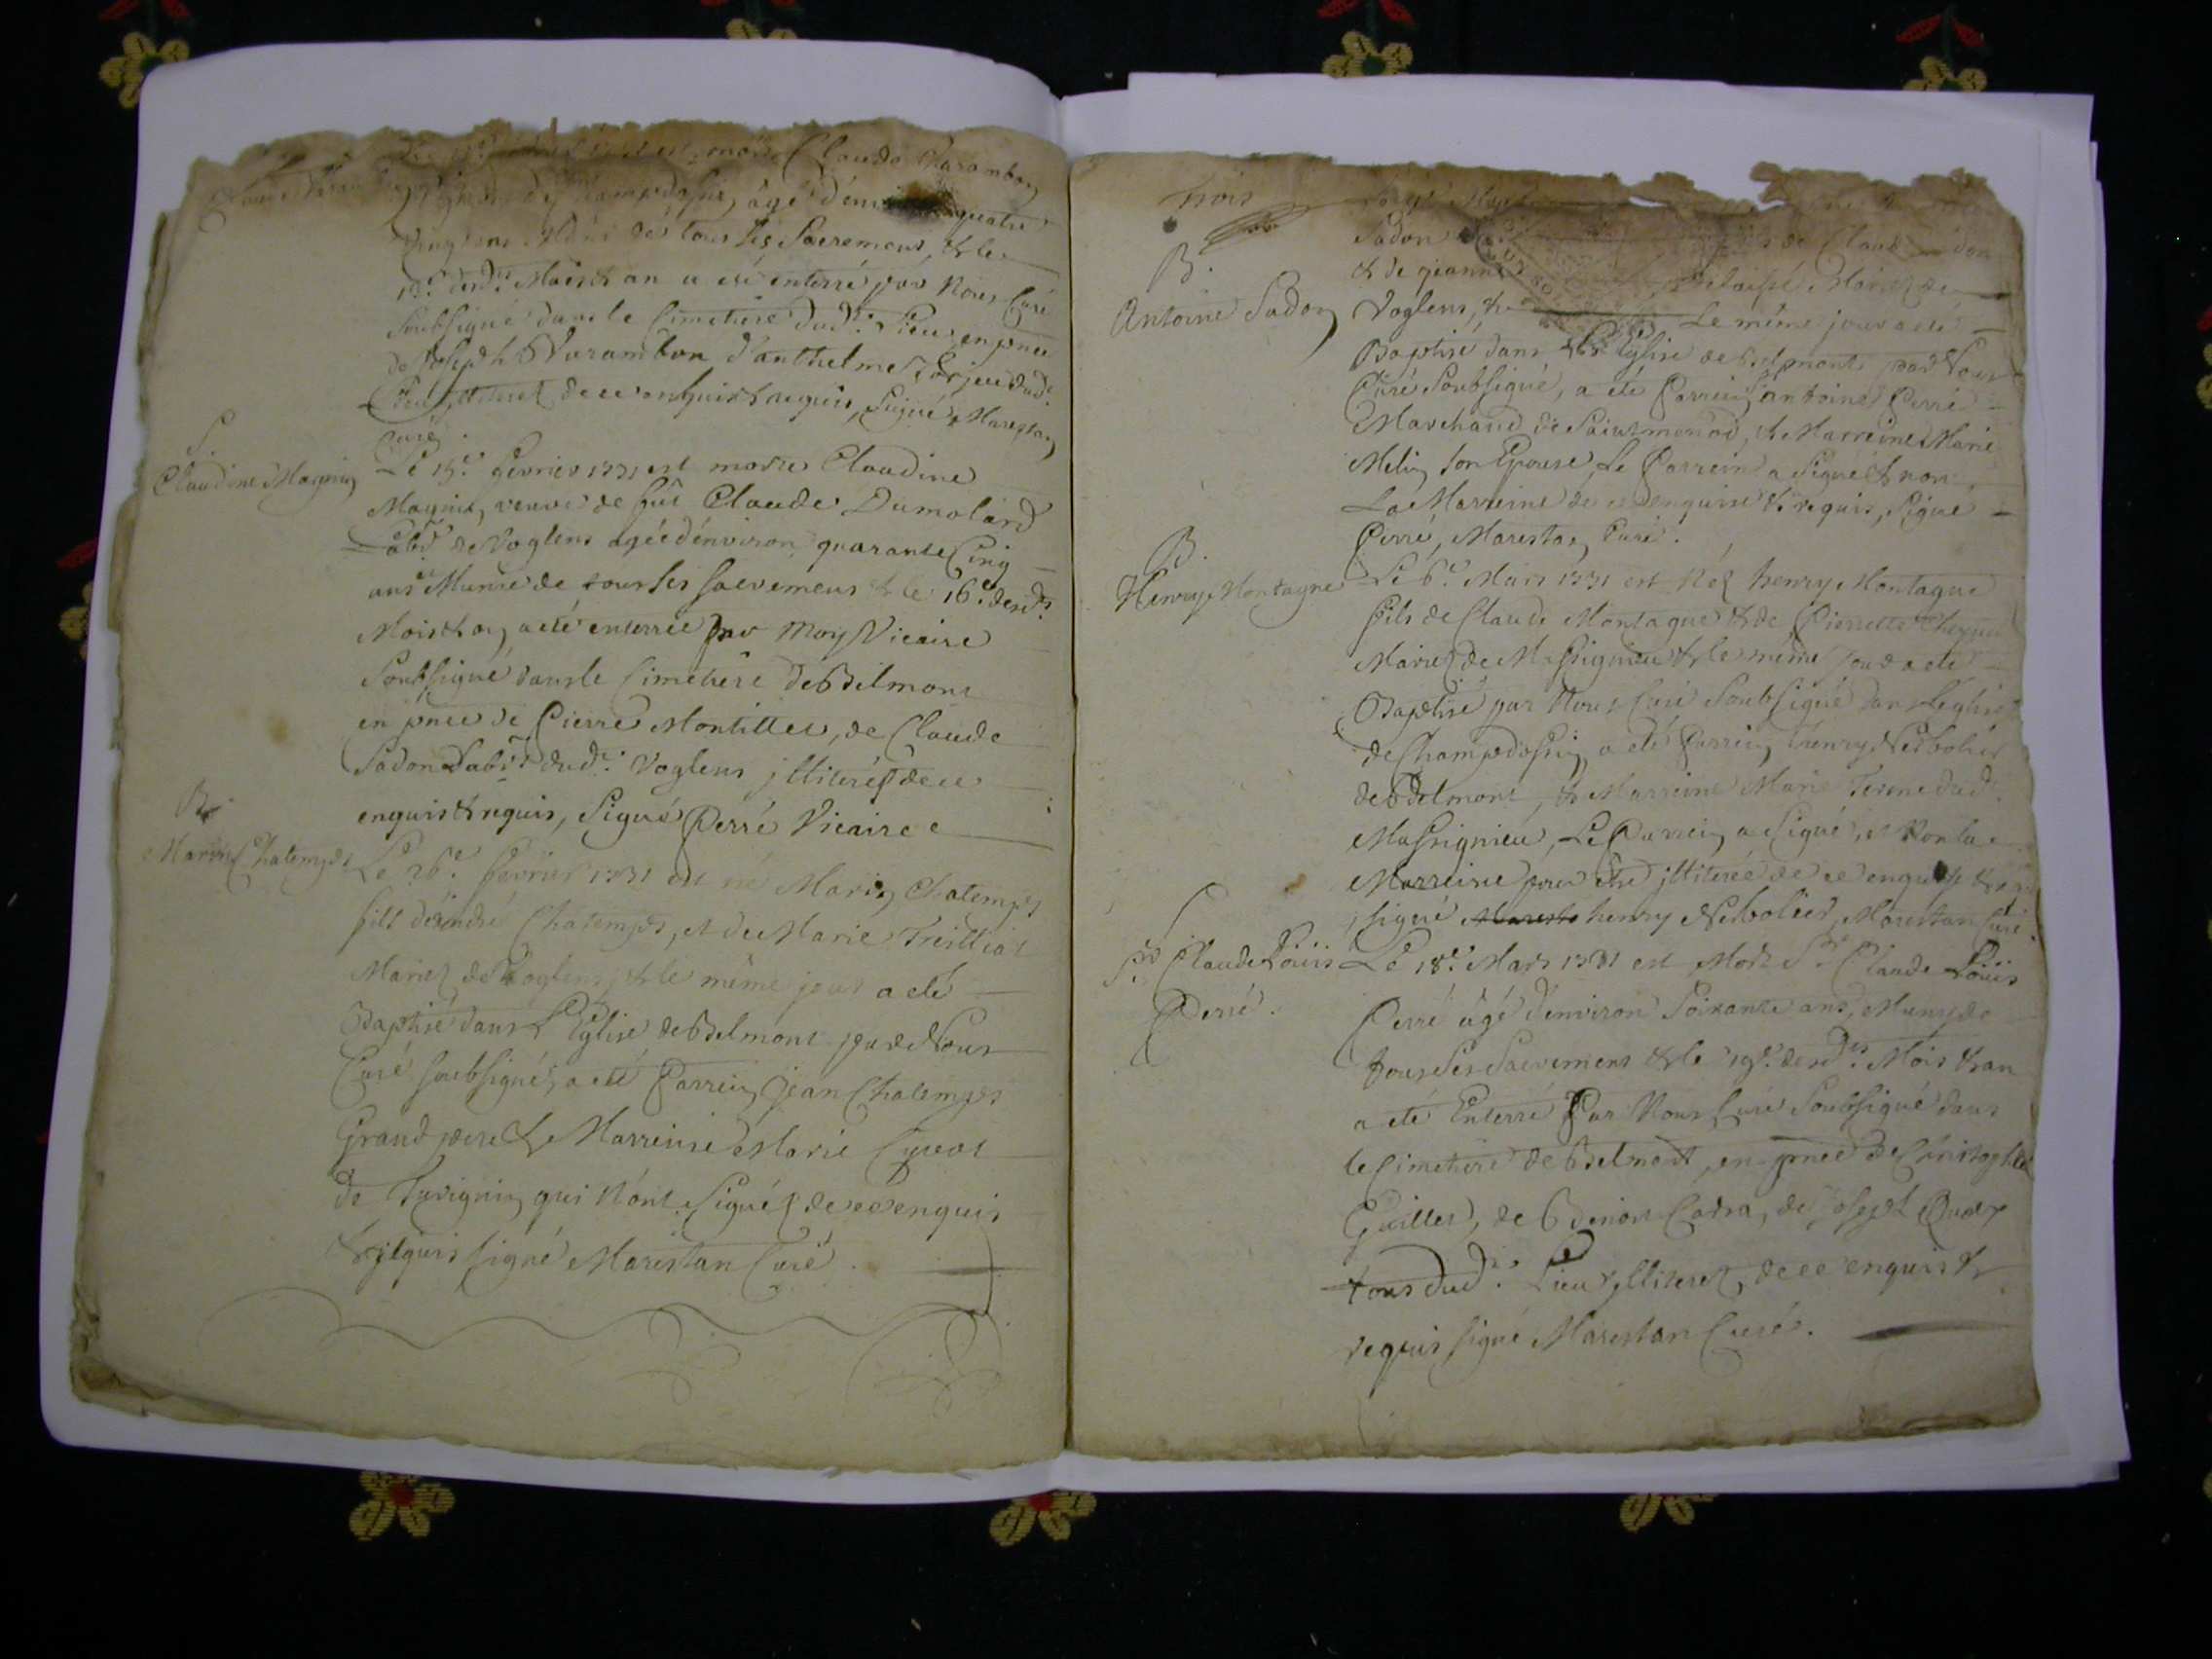 est mort Claude Varambon
âgé d'environ quatre
vingt ans Muni de tous ses Sacremens, & le
desd. Mois & an a eté enterré par Nous Curé
Soubsigné dans le Cimetiere dud. Lieu en pnce
de Joseph Varambon d'anthelme dud.
Lieu illiterez de ce enquis & requis, Signé Marestan
Curé.
S.
Claudine Magnin
Le 15.e fevrier 1731 est morte Claudine
Magnin, veuve de fût Claude Dumolard
habt. de Voglens agée d'environ quarante Cinq
ans Munie de tous ses sacremens & le 16.e desd.
Mois & an, a eté enterrée par Moy Vicaire
Soubsigné dans le Cimetiere de Belmont
en pnce de Pierre Montillet, de Claude
Sadon habts. dud. Voglens illiterés de ce
enquis & requis, Signé Perré Vicaire
B.
Marin Chatemps
Le 26.e fevrier 1731 est né Marin Chatemps
fils d'andré Chatemps, et de Marie Treilliat
Mariez de Voglens, & le même jour a eté
Baptisé dans L'Eglise de Belmont par Nous
Curé soubsigné, a eté Parrein jean Chatemps
Grand pere & Marreine Marie
de qui n'ont Signéz de ce enquis
& requis signé Marestan Curé.
trois
B.
Antoine Sadon
Sadon de Claude Sadon
& de jeanne Mariez de
Voglens, & Le même jour a eté
Baptisé dans L'Eglise de Belmont par Nous
Curé Soubsigné, a eté Parrein antoine Perré
Marchand de & Marreine Marie
Melin son Epouse, Le Parrein a Signé & non
La Marreine de ce enquise & requis, Signé
Perré, Marestan Curé.
B.
Henry Montagne
Le 6.e Mars 1731 est Néz henry Montagne
fils de Claude Montagne & de Pierrette
Mariez de Massignieu & le même jour a eté
Baptisé par Nous Curé Soubsigné dans Leglise
de Champdossin, a eté Parrein henry
de Belmont, & Marreine Marie dud.
Massignieu, Le Parrein a Signé, et Non la
Marreine pour être illiterée de ce enquise & requis
signé henry Marestan Curé.
S.
Sr. Claude Loüis
Perré.
Le 18.e Mars 1731 est Mort Sr. Claude Loüis
Perré âgé d'environ Soixante ans, Muny de
tous Ses Sacremens & le 19.e desd. Mois & an
a eté Enterré Par Nous Curé Soubsigné dans
le Cimetiere de Belmont, en pnce de Christophle
Guillet, de Benoit Cadra, de Joseph
tous dud. Lieu illiterez, de ce enquis &
requis signé Marestan Curé.